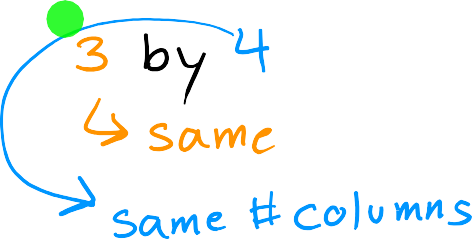 3 by 4
same
same # columns